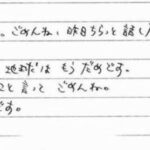 。ごめんね、昨日ちらっと話し
はもうだめです。
と言ってごめんね。
です。